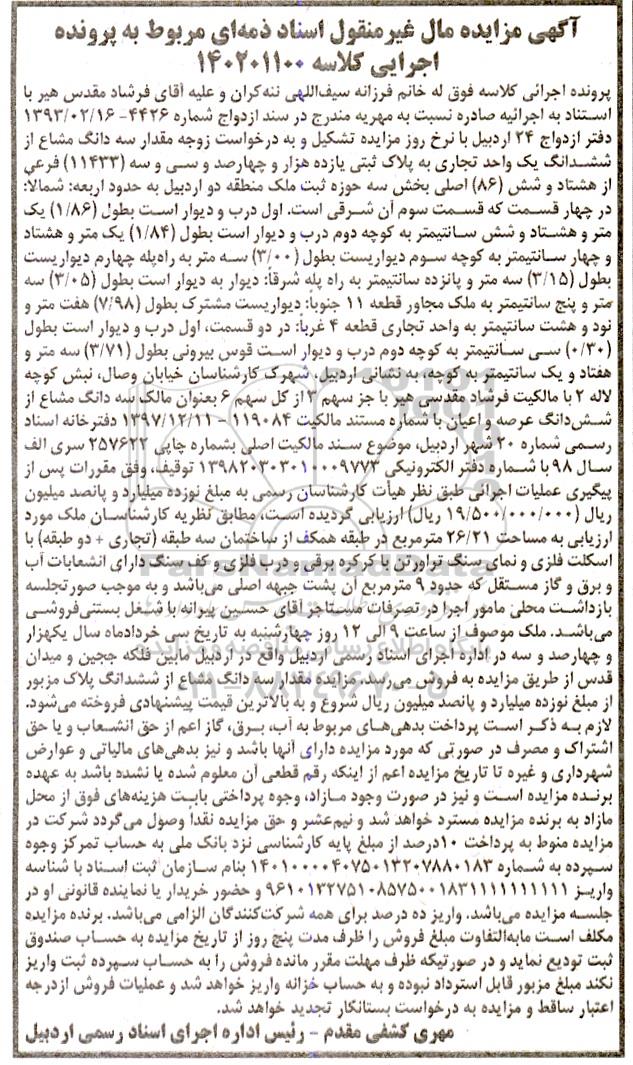 آگهی مزایده مال غیرمنقول اسناد ذمه‌ای مربوط به پرونده
اجرایی کلاسه ۱۴۰۲۰۱۱۰۰
پرونده اجرائی کلاسه فوق له خانم فرزانه سیف‌اللهی ننه‌کران و علیه آقای فرشاد مقدس هیر با
استناد به اجرائیه صادره نسبت به مهریه مندرج در سند ازدواج شماره ۴۴۲۶- ۱۳۹۳/۰۲/۱۶
دفتر ازدواج ۲۴ اردبیل با نرخ روز مزایده تشکیل و به درخواست زوجه مقدار سه دانگ مشاع از
ششدانگ یک واحد تجاری به پلاک ثبتی یازده هزار و چهارصد و سی و سه (۱۱۴۳۳) فرعی
از هشتاد و شش (۸۶) اصلی بخش سه حوزه ثبت ملک منطقه دو اردبیل به حدود اربعه: شمالا:
در چهار قسمت که قسمت سوم آن شرقی است. اول درب و دیوار است بطول (۱/۸۶) یک
متر و هشتاد و شش سانتیمتر به کوچه دوم درب و دیوار است بطول (۱/۸۴) یک متر و هشتاد
و چهار سانتیمتر به کوچه سوم دیواریست بطول (۳/۰۰) سه متر به راه‌پله چهارم دیواریست
بطول (۳/۱۵) سه متر و پانزده سانتیمتر به راه پله شرقاً: دیوار به دیوار است بطول (۳/۰۵) سه
متر و پنج سانتیمتر به ملک مجاور قطعه ۱۱ جنوبا: دیواریست مشترک بطول (۷/۹۸) هفت متر و
نود و هشت سانتیمتر به واحد تجاری قطعه ۴ غرباً: در دو قسمت، اول درب و دیوار است بطول
(۰/۳۰) سی سانتیمتر به کوچه دوم درب و دیوار است قوس بیرونی بطول (۳/۷۱) سه متر و
هفتاد و یک سانتیمتر به کوچه، به نشانی اردبیل، شهرک کارشناسان خیابان وصال، نبش کوچه
لاله ۲ با مالکیت فرشاد مقدسی هیر با جز سهم ۳ از کل سهم ۶ بعنوان مالک سه دانگ مشاع از
شش‌دانگ عرصه و اعیان با شماره مستند مالکیت ۱۱۹۰۸۴ - ۱۳۹۷/۱۲/۱۱ دفترخانه اسناد
رسمی شماره ۲۰ شهر اردبیل، موضوع سند مالکیت اصلی بشماره چاپی ۲۵۷۶۲۲ سری الف
سال ۹۸ با شماره دفتر الکترونیکی ۱۳۹۸۲۰۳۰۳۰۱۰۰۰۹۷۷۳ توقیف، وفق مقررات پس از
پیگیری عملیات اجرائی طبق نظر هیأت کارشناسان رسمی به مبلغ نوزده میلیارد و پانصد میلیون
ریال (۱۹/۵۰۰/۰۰۰/۰۰۰ ریال) ارزیابی گردیده است، مطابق نظریه کارشناسان ملک مورد
ارزیابی به مساحت ۲۶/۲۱ مترمربع در طبقه همکف از ساختمان سه طبقه (تجاری + دو طبقه) با
اسکلت فلزی و نمای سنگ تراورتن با کرکره برقی و درب فلزی و کف سنگ دارای انشعابات آب
و برق و گاز مستقل که حدود ۹ مترمربع آن پشت جبهه اصلی می‌باشد و به موجب صورتجلسه
بازداشت محلی مامور اجرا در تصرفات مستاجر آقای حسین پیرانه با شغل بستنی‌فروشی
می‌باشد. ملک موصوف از ساعت ۹ الی ۱۲ روز چهارشنبه به تاریخ سی خردادماه سال یکهزار
و چهارصد و سه در اداره اجرای اسناد رسمی اردبیل واقع در اردبیل مابین فلکه ججین و میدان
قدس از طریق مزایده به فروش می‌رسد. مزایده مقدار سه دانگ مشاع از ششدانگ پلاک مزبور
از مبلغ نوزده میلیارد و پانصد میلیون ریال شروع و به بالاترین قیمت پیشنهادی فروخته می‌شود.
لازم به ذکر است پرداخت بدهی‌های مربوط به آب، برق، گاز اعم از حق انشعاب و یا حق
اشتراک و مصرف در صورتی که مورد مزایده دارای آنها باشد و نیز بدهی‌های مالیاتی و عوارض
شهرداری و غیره تا تاریخ مزایده اعم از اینکه رقم قطعی آن معلوم شده یا نشده باشد به عهده
برنده مزایده است و نیز در صورت وجود مازاد، وجوه پرداختی بابت هزینه‌های فوق از محل
مازاد به برنده مزایده مسترد خواهد شد و نیم‌عشر و حق مزایده نقداً وصول می‌گردد شرکت در
مزایده منوط به پرداخت ۱۰درصد از مبلغ پایه کارشناسی نزد بانک ملی به حساب تمرکز وجوه
سپرده به شماره ۱۴۰۱۰۰۰۰۴۰۷۵۰۱۳۲۰۷۸۸۰۱۸۳ بنام سازمان ثبت اسناد با شناسه
واریز ۹۶۱۰۱۳۲۷۵۱۰۸۵۷۵۰۰۱۸۳۱۱۱۱۱۱۱۱۱۱ و حضور خریدار یا نماینده قانونی او در
جلسه مزایده می‌باشد. واریز ده درصد برای همه شرکت‌کنندگان الزامی می‌باشد. برنده مزایده
مکلف است مابه‌التفاوت مبلغ فروش را ظرف مدت پنج روز از تاریخ مزایده به حساب صندوق
ثبت تودیع نماید و در صورتیکه ظرف مهلت مقرر مانده فروش را به حساب سپرده ثبت واریز
نکند مبلغ مزبور قابل استرداد نبوده و به حساب خزانه واریز خواهد شد و عملیات فروش ازدرجه
اعتبار ساقط و مزایده به درخواست بستانکار تجدید خواهد شد.
مهری کشفی مقدم - رئیس اداره اجرای اسناد رسمی اردبیل